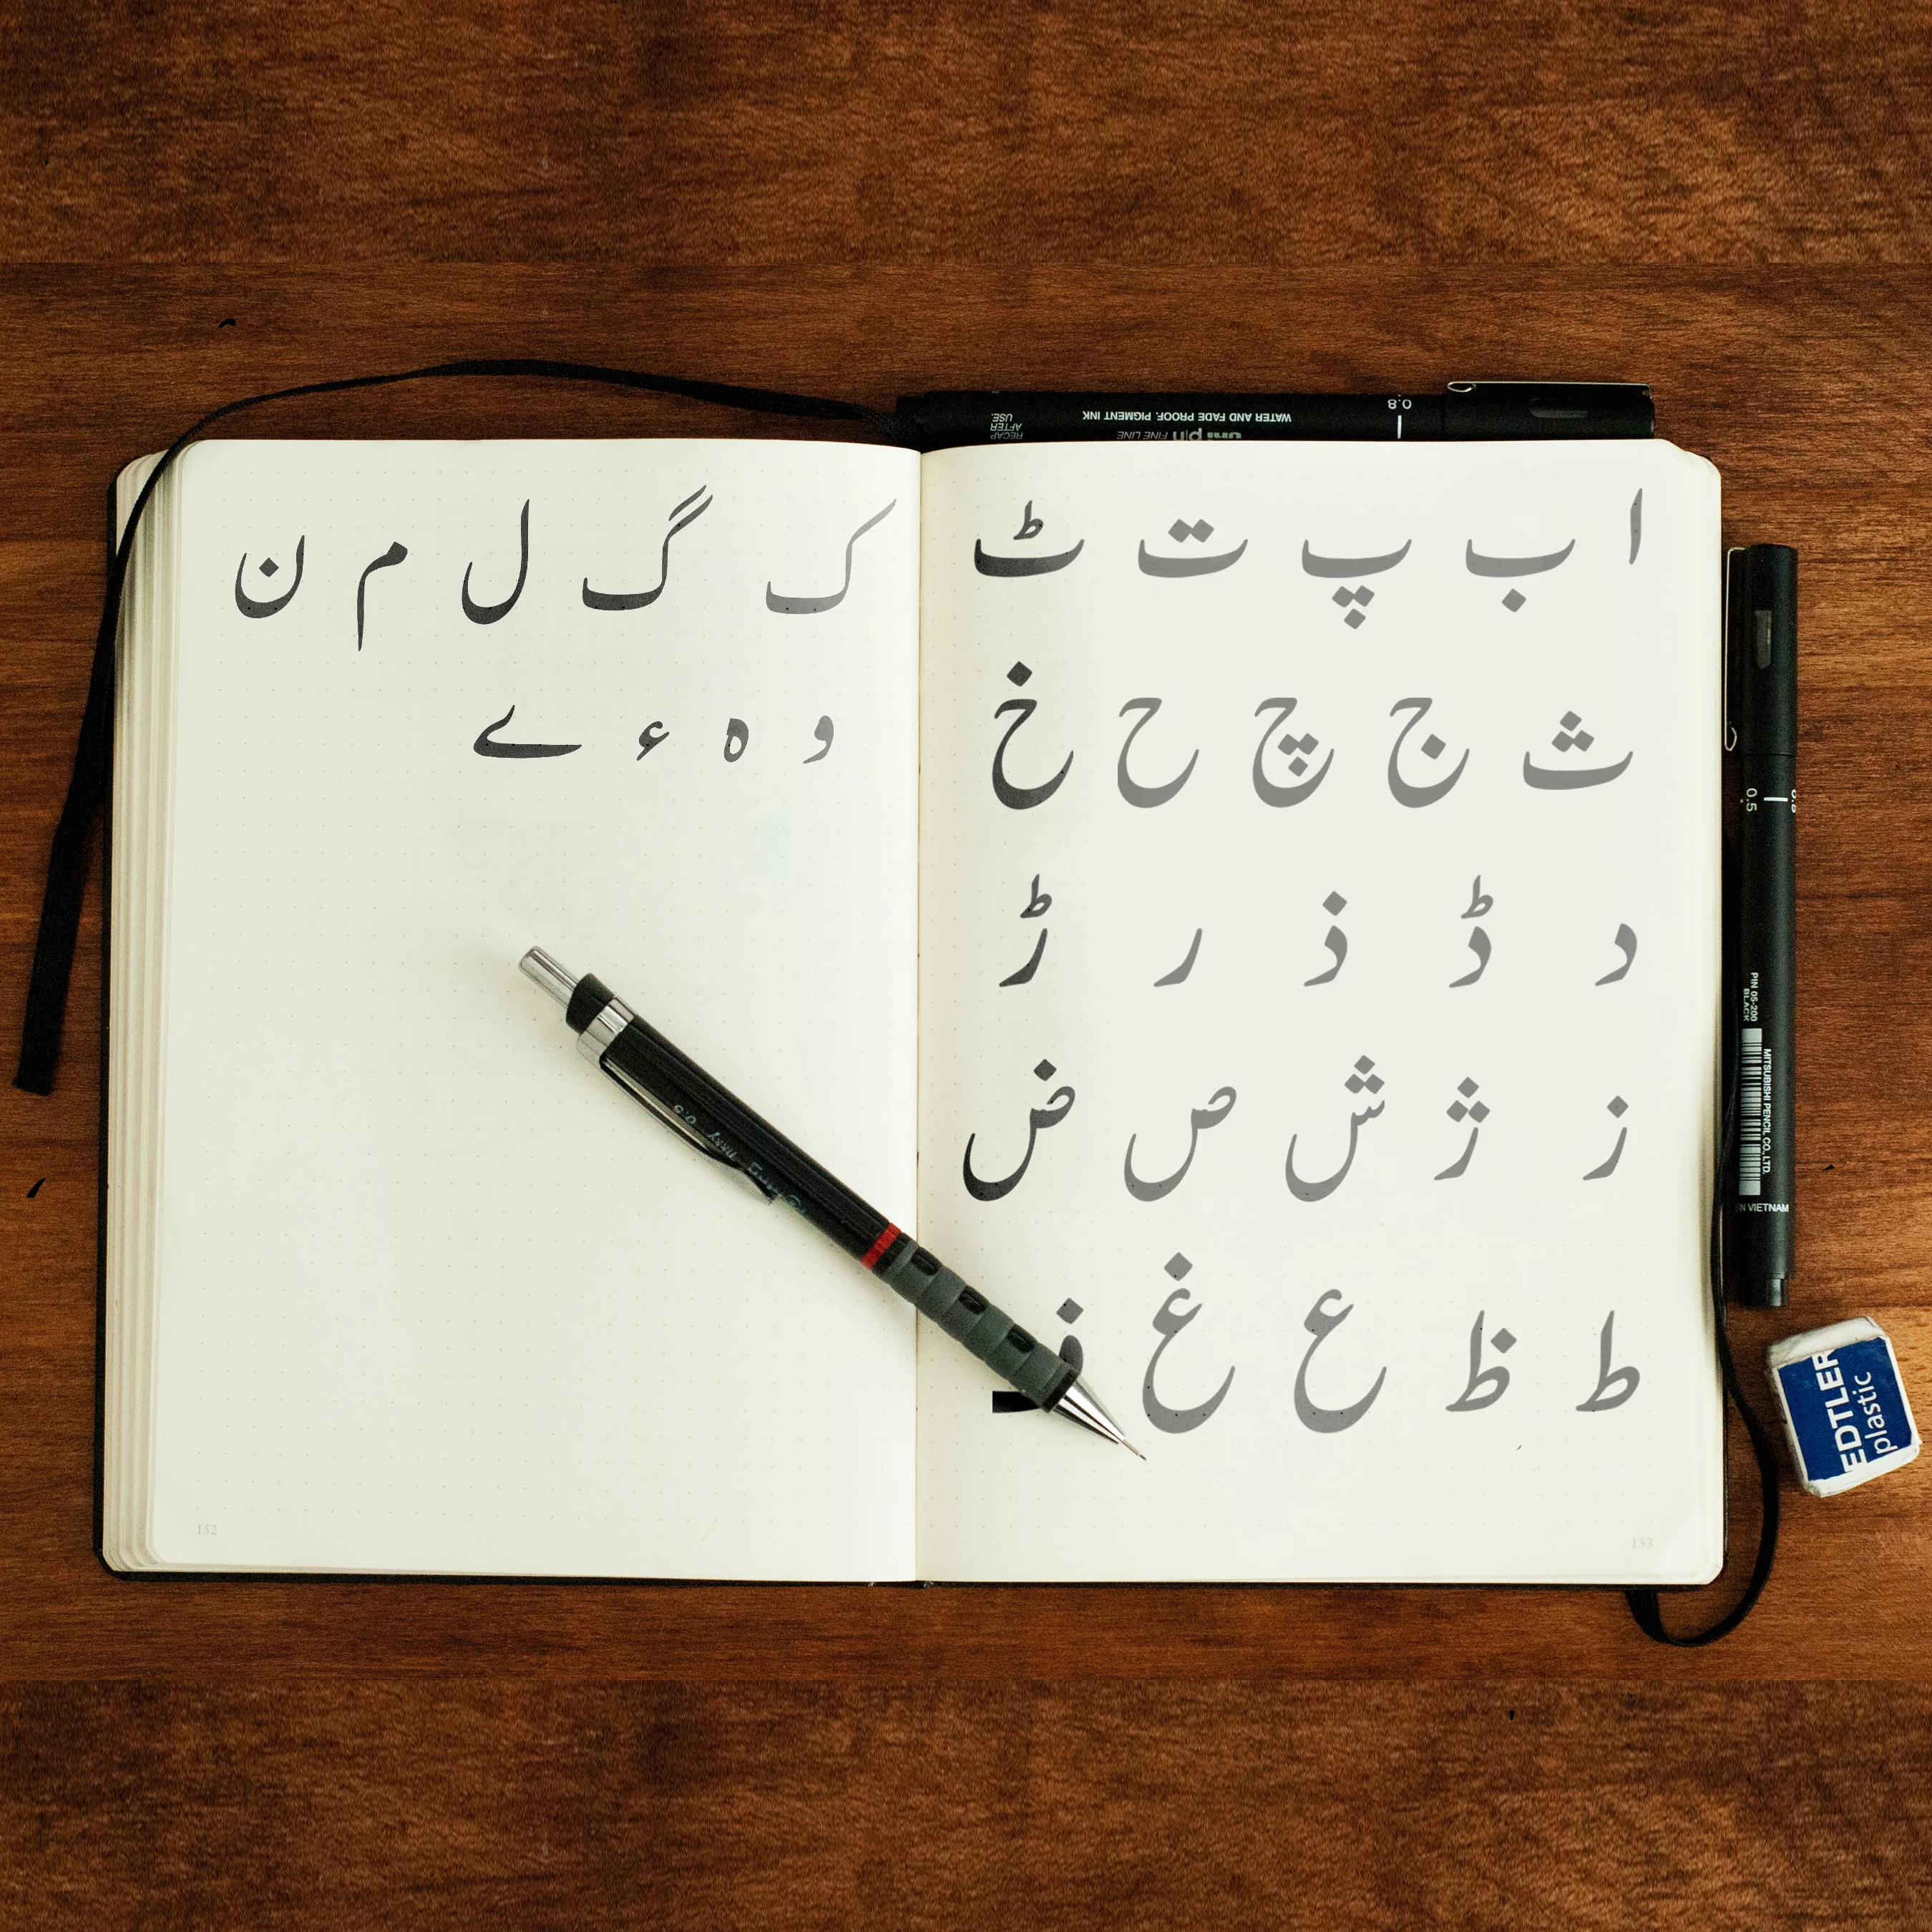 ا ب پ ت ٹ
ث ج چ ح خ
د ڈ ذ ر ڑ
ز ژ ش ص ض
ط ظ ع غ ف
ک گ ل م ن
و ہ ء ے
152
153
WATER AND FADE PROOF, PIGMENT INK
uni pin FINE LINE
RECAP AFTER USE.
0.8
0.5
PIN 05-200
BLACK
MITSUBISHI PENCIL CO., LTD.
N VIETNAM
EDTLER
plastic